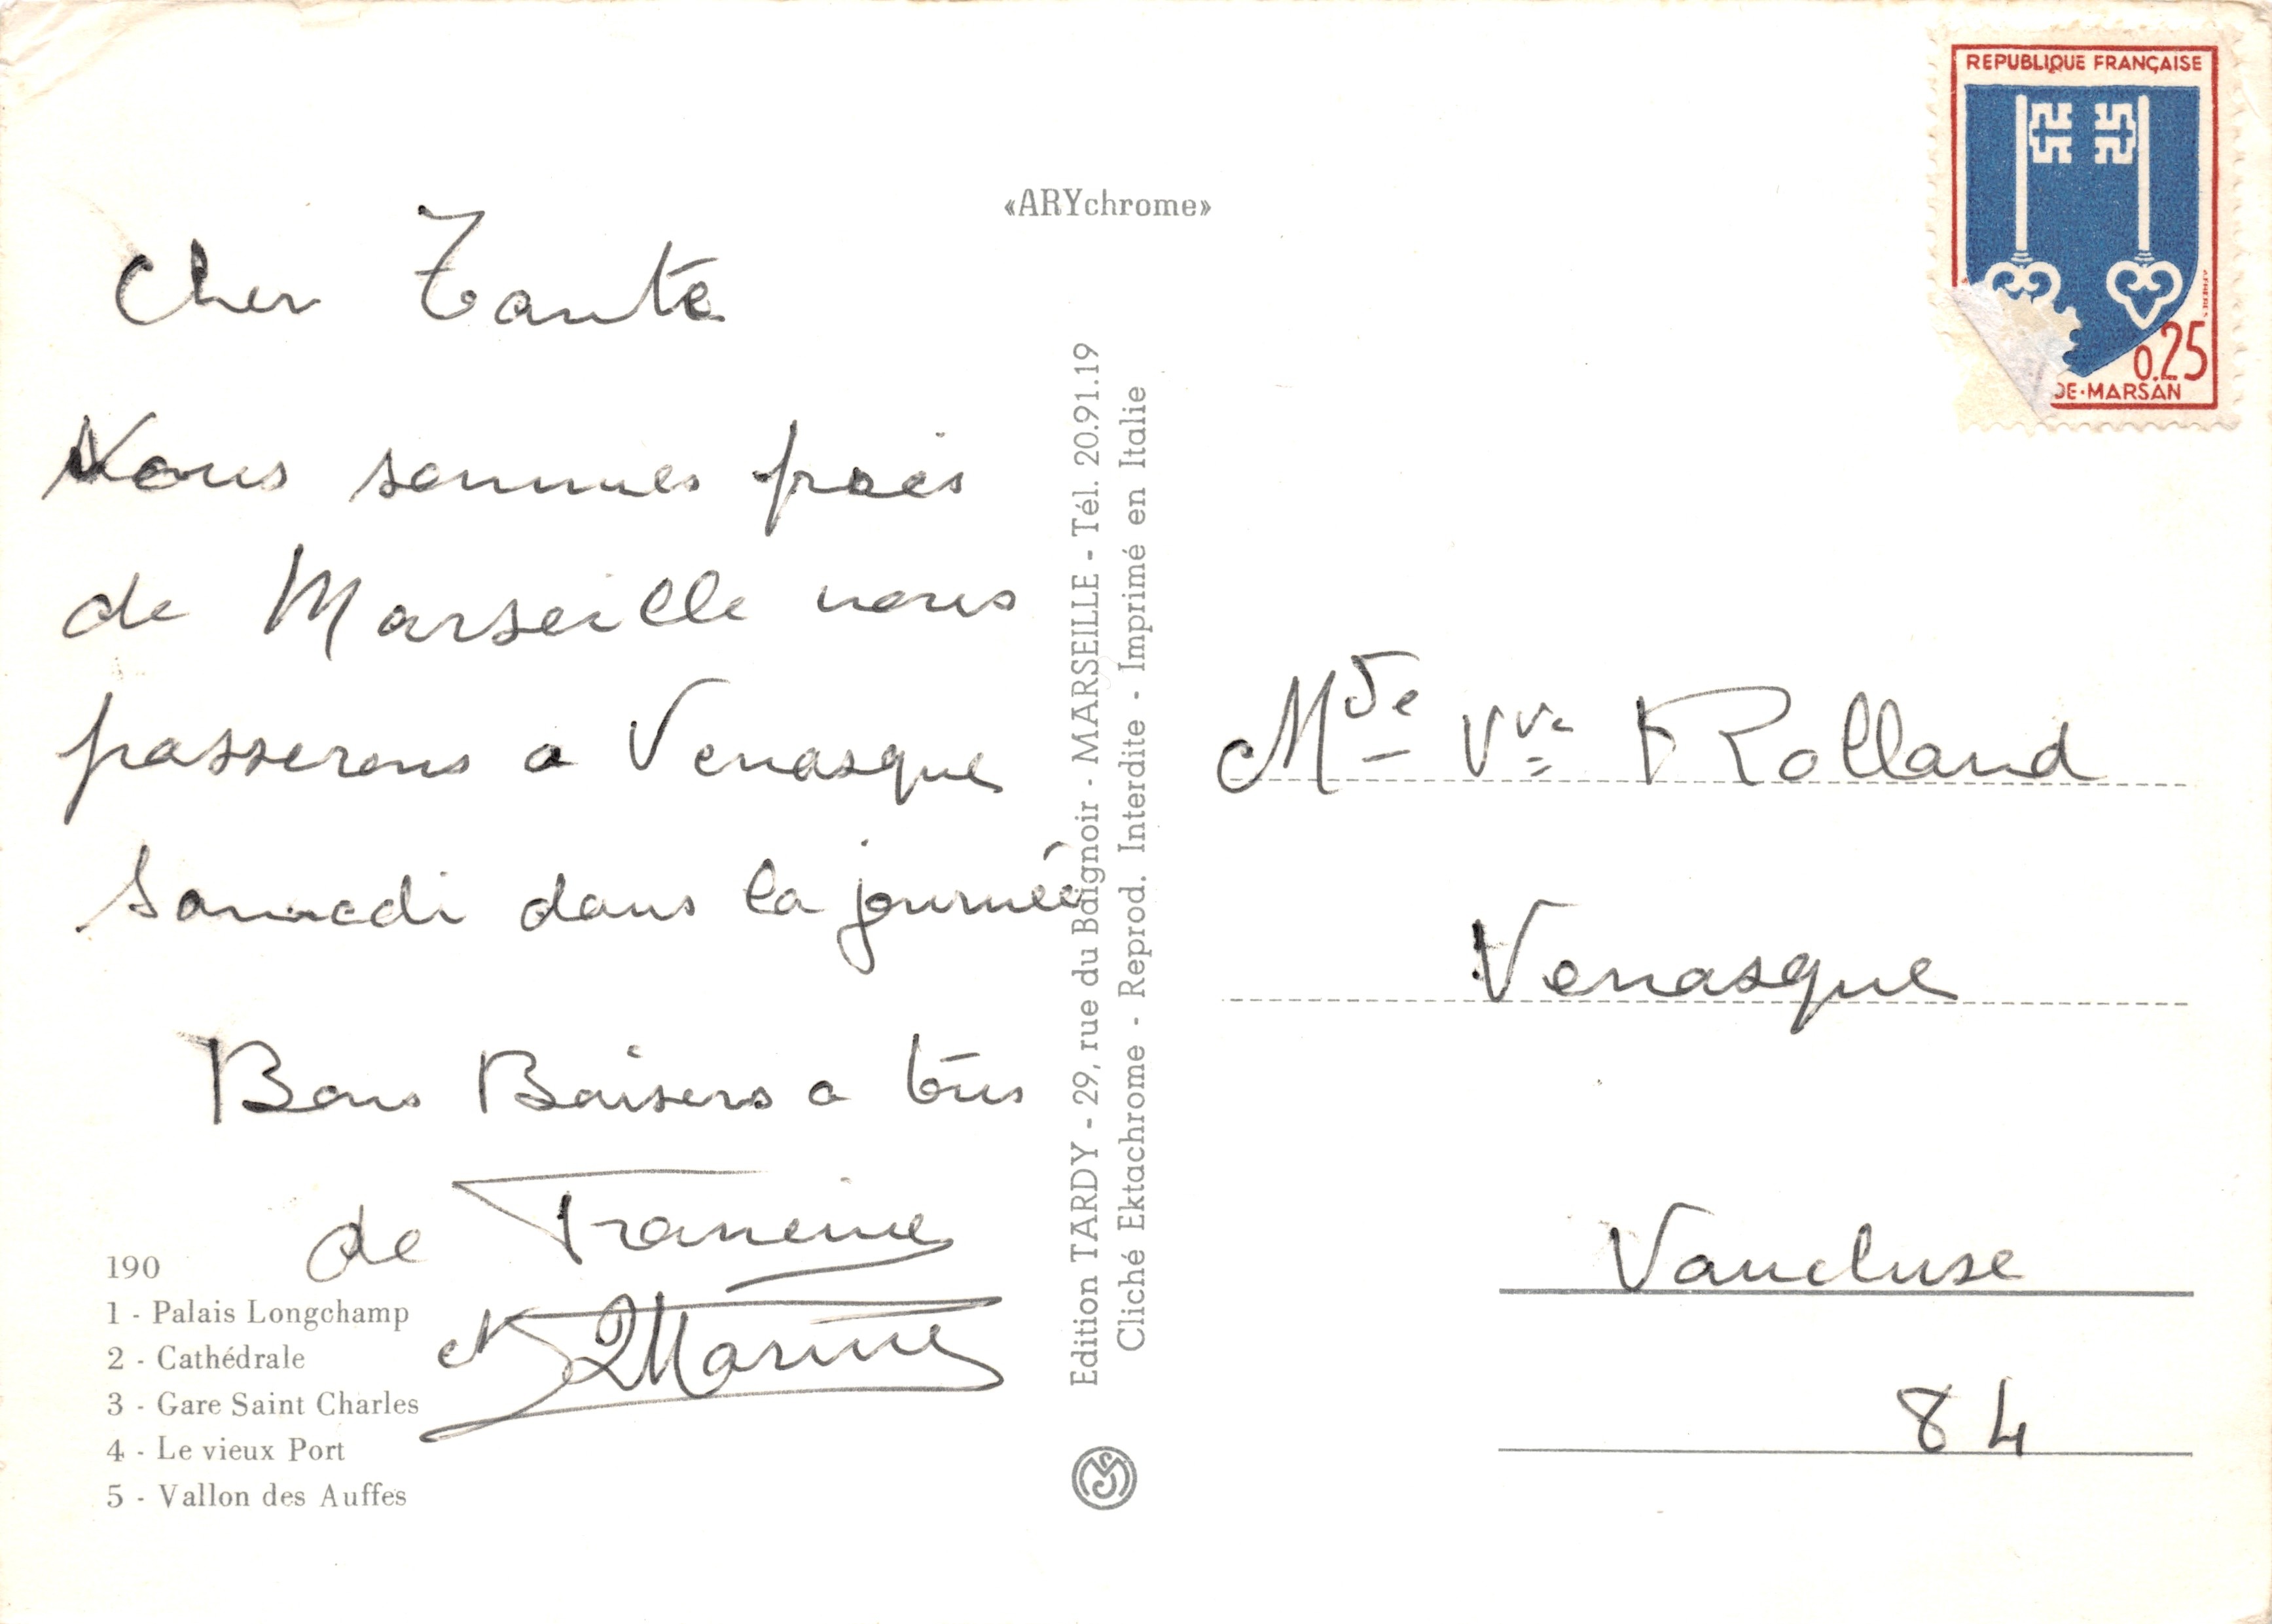 «ARYchrome»
REPUBLIQUE FRANÇAISE
0.25
DE-MARSAN
Cher Tante
Nous sommes près
de Marseille nous
passerons a Venasque
Samedi dans la journée
Bons Baisers a tous
de Francine
et Marine
190
1 - Palais Longchamp
2 - Cathédrale
3 - Gare Saint Charles
4 - Le vieux Port
5 - Vallon des Auffes
Edition TARDY - 29, rue du Baignoir - MARSEILLE - Tél. 20.91.19
Cliché Ektachrome - Reprod. Interdite - Imprimé en Italie
Mde Vve Rolland
Venasque
Vaucluse
84